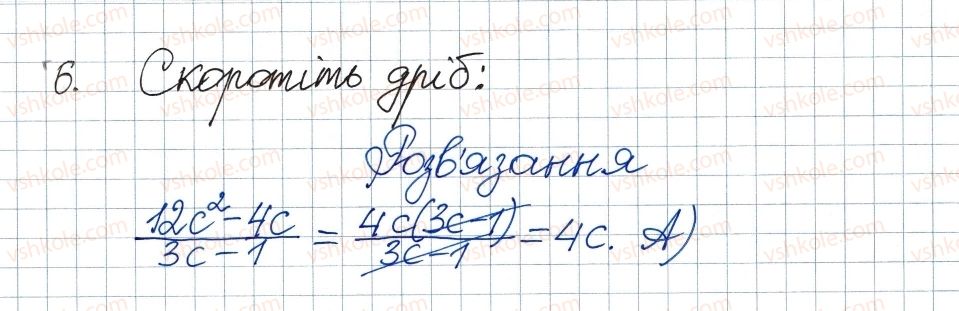 6. Скоротіть дріб:
Розв'язання
12c² - 4c / 3c - 1 = 4c(3c - 1) / 3c - 1 = 4c. А)